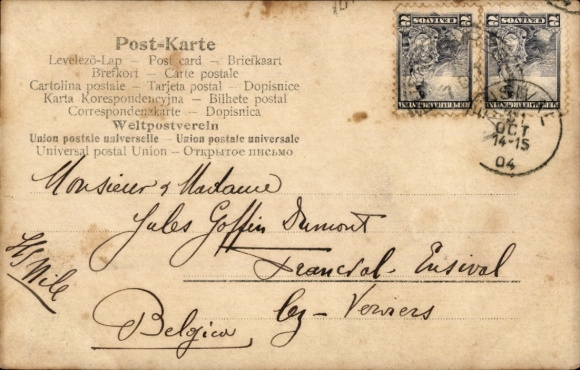 Post-Karte
Levelező-Lap — Post card — Briefkaart
Brefkort — Carte postale
Cartolina postale — Tarjeta postal — Dopisnice
Karta Korespondencyjna — Bilhete postal
Correspondenzkarte — Dopisnica
Weltpostverein
Union postale universelle — Union postale universale
Universal postal Union — Открытое письмо
2 CENTAVOS 2
2 CENTAVOS 2
REPUBLICA ARGENTINA
REPUBLICA ARGENTINA
OCT
14-15
04
Monsieur & Madame
Jules Goffin Dumont
Francval-Ensival
lez-Verviers
Belgica